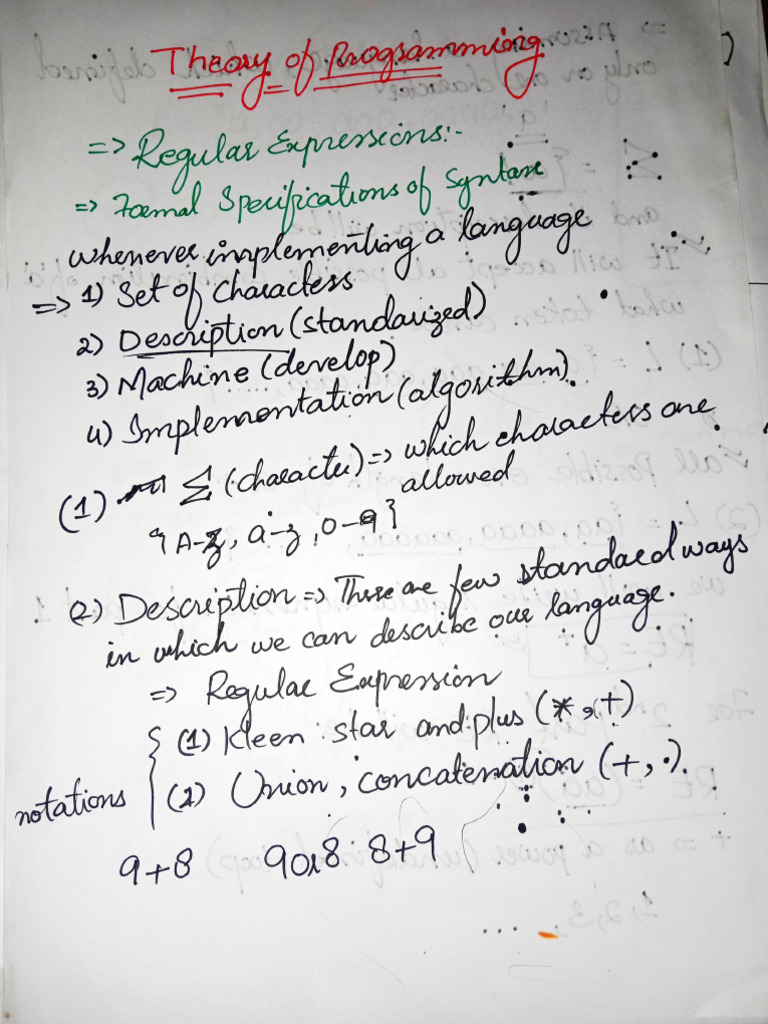 Theory of Programming
=> Regular Expressions:-
=> Formal Specifications of Syntax
whenever implementing a language
=> 1) Set of Characters
2) Description (standarized)
3) Machine (develop)
4) Implementation (algorithm).
(1) Σ (character) => which characters are allowed
{A-Z, a-z, 0-9}
(2) Description => These are few standard ways
in which we can describe our language.
=> Regular Expression
notations { (1) Kleen star and plus (*, +)
(2) Union, concatenation (+, ·).
9+8 9 or 8 8+9